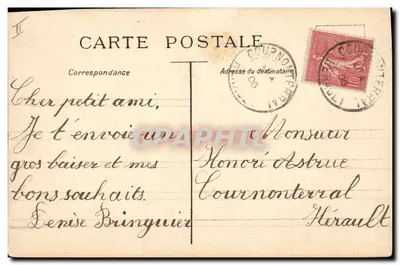 II
CARTE POSTALE
Correspondance
Adresse du destinataire
COURNONTERRAL
06
Cher petit ami,
Je t'envoie un
gros baiser et mes
bons souhaits.
Denise Bringuier
Monsieur
Honoré Astruc
Cournonterral
Hérault
CPAPHIL